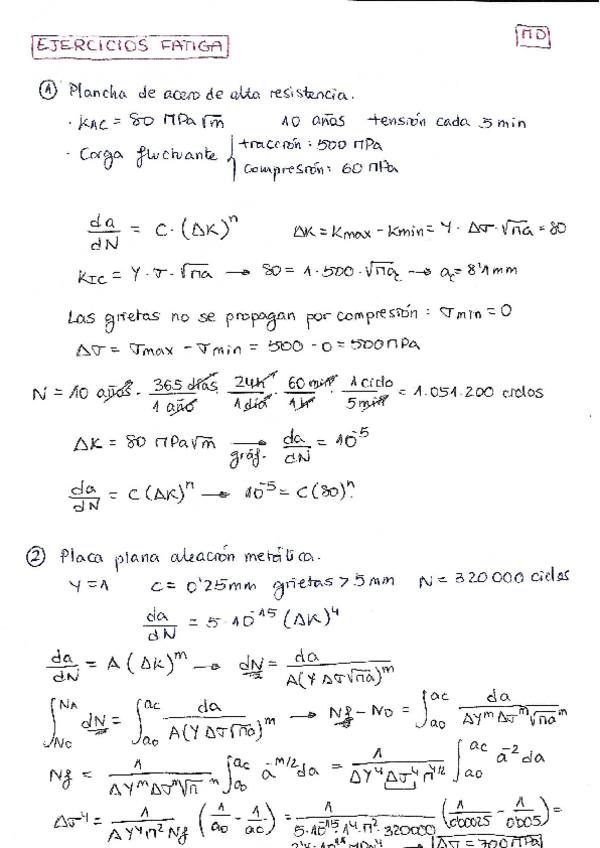 EJERCICIOS FATIGA
MD
① Plancha de acero de alta resistencia.
· KAC = 80 MPa√m 10 años tensión cada 5 min
· Carga fluctuante { tracción: 500 MPa
compresión: 60 MPa
da/dN = C·(ΔK)^n ΔK = Kmax - Kmin = Y·Δσ·√πa = 80
KIC = Y·σ·√πa → 80 = 1·500·√πac → ac = 8'1mm
Las grietas no se propagan por compresión: σmin = 0
Δσ = σmax - σmin = 500 - 0 = 500 MPa
N = 10 años · 365 días/1 año · 24h/1 día · 60 min/1h · 1 ciclo/5 min = 1.051.200 ciclos
ΔK = 80 MPa√m → gráf. da/dN = 10^-5
da/dN = C(ΔK)^n → 10^-5 = C(80)^n?
② Placa plana aleación metálica.
Y = 1 C = 0'25mm grietas > 5mm N = 320000 ciclos
da/dN = 5·10^-15 (ΔK)^4
da/dN = A(ΔK)^m → dN = da/A(YΔσ√πa)^m
∫No^NA dN = ∫ao^ac da/A(YΔσ√πa)^m → Nf - No = ∫ao^ac da/AY^mΔσ^m√πa^m
Nf = 1/AY^mΔσ^m√π^m ∫ao^ac a^-m/2 da = 1/AY^4Δσ^4π^4/2 ∫ao^ac a^-2 da
Δσ^4 = 1/AY^4π^2Nf (1/ao - 1/ac) = 1/5·10^-15·1^4·π^2·320000 (1/0'00025 - 1/0'005) =
Δσ = 700 MPa